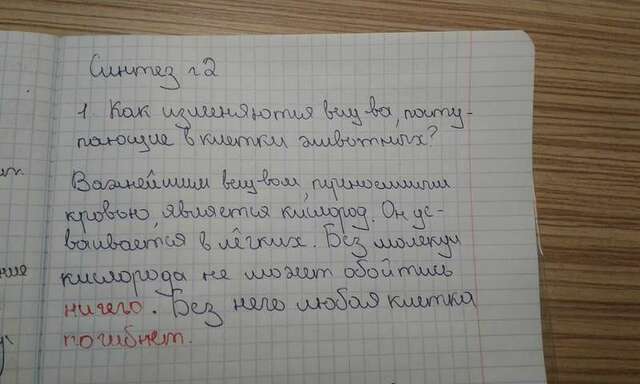 Синтез г2
1. Как изменяются вещ-ва, посту-
пающие в клетки животных?
Важнейшим вещ-вом, приносимым
кровью, является кислород. Он ус-
ваивается в лёгких. Без молекул
кислорода не может обойтись
ничего. Без него любая клетка
погибнет.
ние